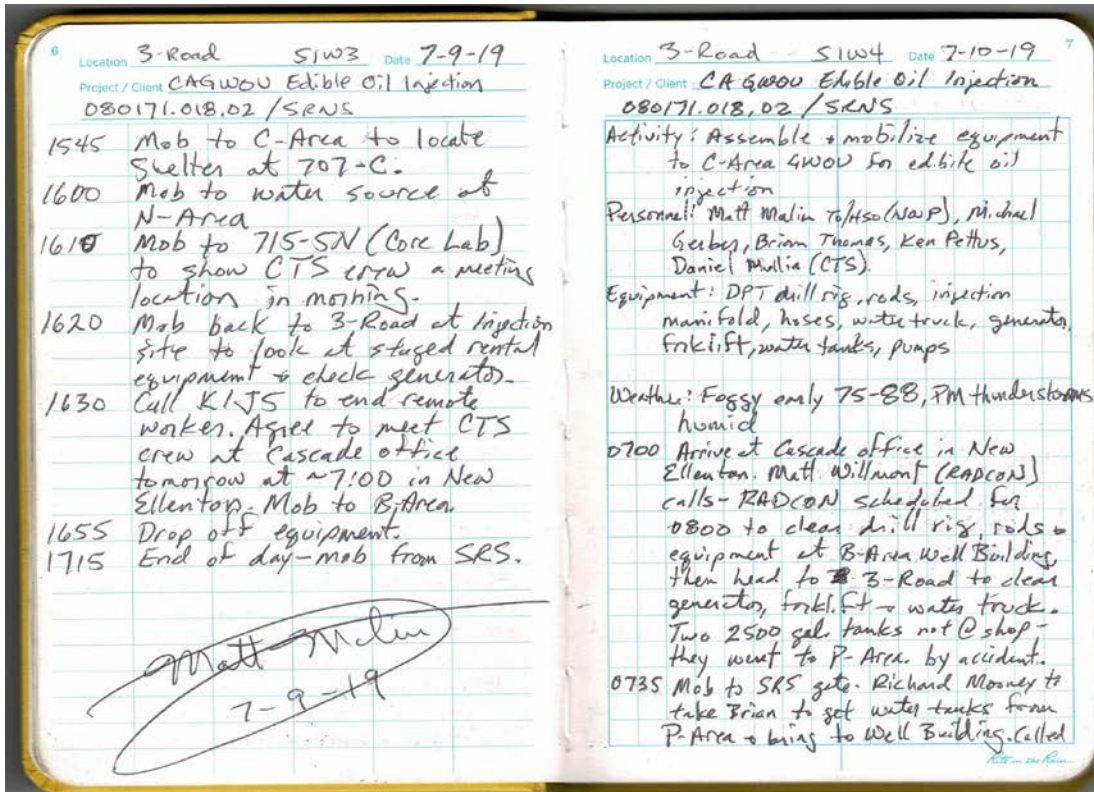 6
Location 3-Road S1W3 Date 7-9-19
Project / Client CAGWOU Edible Oil Injection
080171.018.02 / SRNS
1545 Mob to C-Area to locate
shelter at 707-C.
1600 Mob to water source at
N-Area
1610 Mob to 715-5N (Core Lab)
to show CTS crew a meeting
location in morning.
1620 Mob back to 3-Road at Injection
site to look at staged rental
equipment & check generator.
1630 Call KIJS to end remote
worker. Agree to meet CTS
crew at Cascade office
tomorrow at ~7:00 in New
Ellenton. Mob to B-Area.
1655 Drop off equipment.
1715 End of day - mob from SRS.
Matt Malin
7-9-19
7
Location 3-Road S1W4 Date 7-10-19
Project / Client CAGWOU Edible Oil Injection
080171.018.02 / SRNS
Activity: Assemble & mobilize equipment
to C-Area GWOU for edible oil
injection
Personnel: Matt Malin TO/HSO (NWP), Michael
Gerber, Brian Thomas, Ken Pettus,
Daniel Mullia (CTS).
Equipment: DPT drill rig, rods, injection
manifold, hoses, water truck, generator,
forklift, water tanks, pumps
Weather: Foggy early 75-88, PM thunderstorms
humid
0700 Arrive at Cascade office in New
Ellenton. Matt Willmont (RADCON)
calls - RADCON scheduled for
0800 to clear drill rig, rods &
equipment at B-Area Well Building,
then head to 3-Road to clear
generator, forklift & water truck.
Two 2500 gal. tanks not @ shop -
they went to P-Area by accident.
0735 Mob to SRS gate. Richard Mooney to
take Brian to get water tanks from
P-Area & bring to Well Building. Called
Rite in the Rain